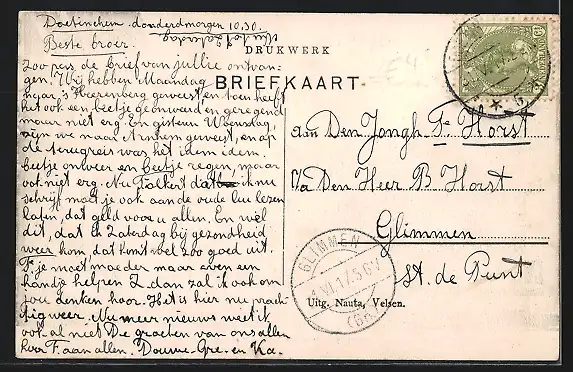 Doetinchem donderdmorgen 10,30.
Beste broer.
DRUKWERK
BRIEFKAART
Zoo pas de brief van jullie ontvan-
gen. Wij hebben Maandag
naar 's Heerenberg geweest en toen heeft
het ook een beetje geonweerd en geregend
maar niet erg. En gisteren Woensdag,
zijn we maar Arnhem geweest, en op
de terugreis was het idem idem.
beetje onweer en beetje regen, maar
ook niet erg. Nu Folkert dat ik nu
schrijf moet je ook aan de oude lui lezen
laten, dat geld voor u allen. En wel
dit, dat ik Zaterdag bij gezondheid
weer kom, dat komt wel zoo goed uit.
F. je moet moeder maar even een
handje helpen Z. dan zal ik ook om
jou denken hoor. Het is hier nu prach-
tig weer. Nu meer nieuws weet ik
ook al niet De groeten van ons allen
voor F. aan allen. Douwe-Gre-en Ka.
aan Den Jongh F. Horst
Va Den Heer B Horst
Glimmen
St. de Punt
GLIMMEN
VI.17.5-6V
Uitg. Nauta, Velsen.
€4